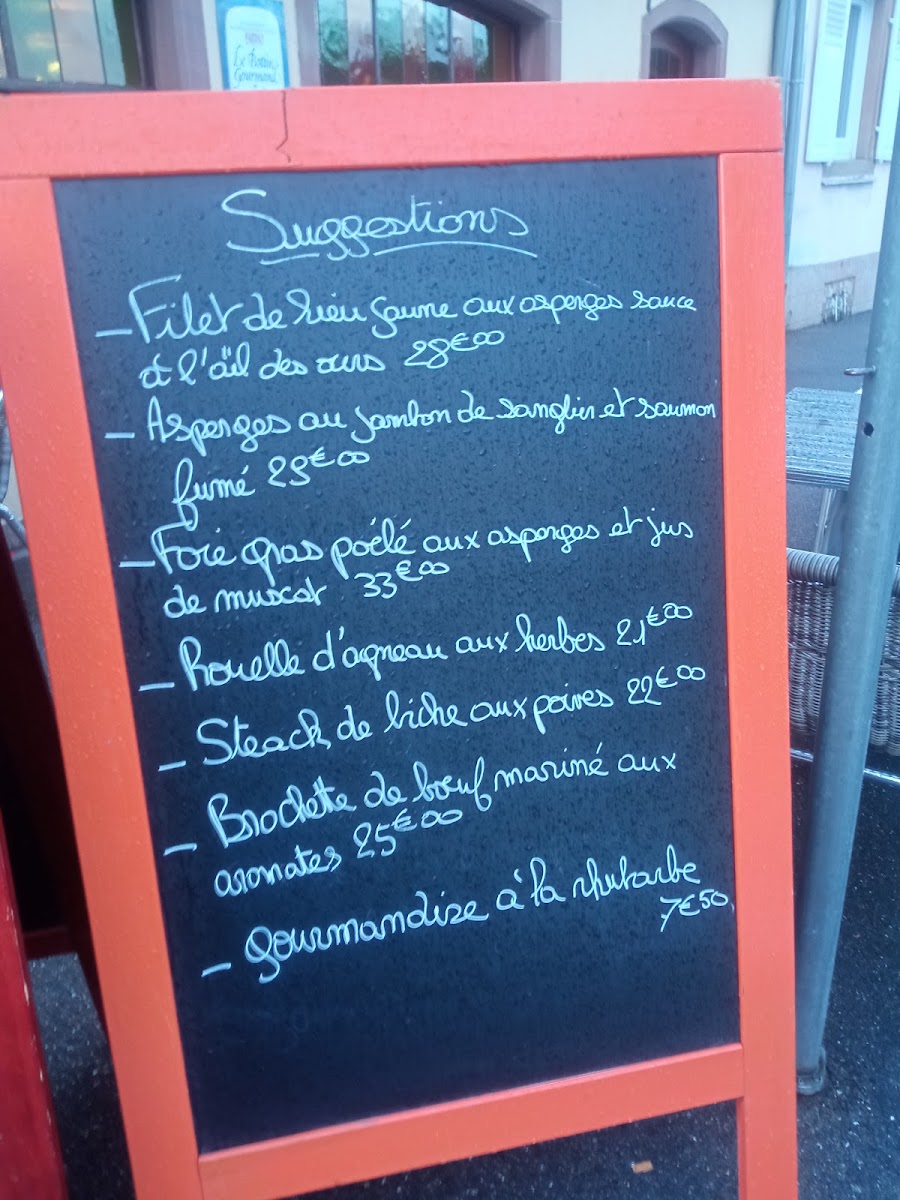 Le Rotin
Gourmand
Suggestions
- Filet de lieu jaune aux asperges sauce
et l'aïl des ours 28€00
- Asperges au jambon de sanglier et saumon
fumé 28€00
- Foie gras poélé aux asperges et jus
de muscat 33€00
- Rouelle d'agneau aux herbes 21€00
- Steack de biche aux poires 22€00
- Brochette de bœuf mariné aux
aromates 25€00
- Gourmandise à la rhubarbe
7€50